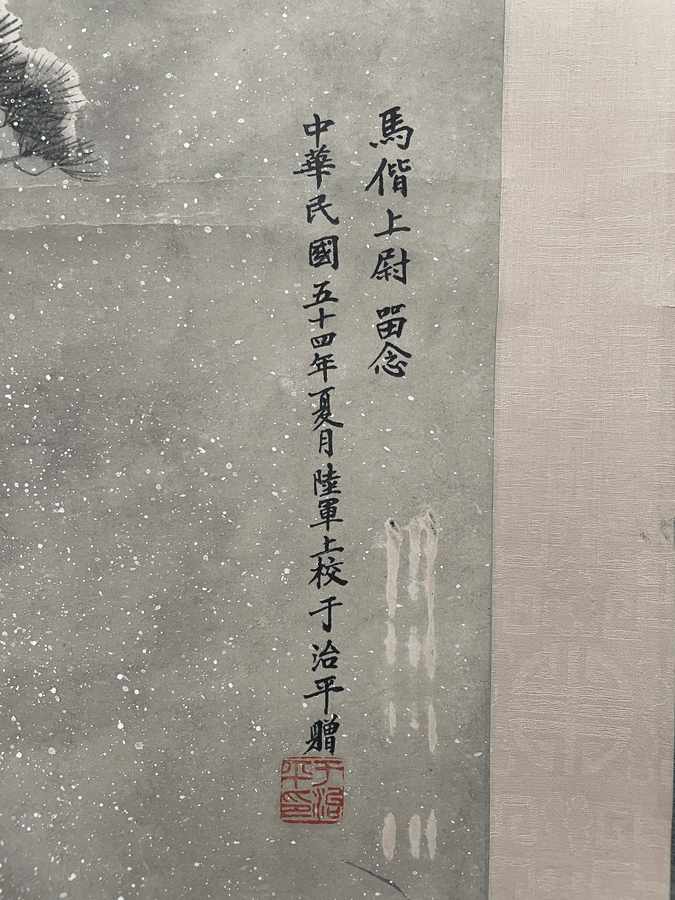 馬偕上尉 留念
中華民國五十四年夏月陸軍上校于治平贈
于治平印